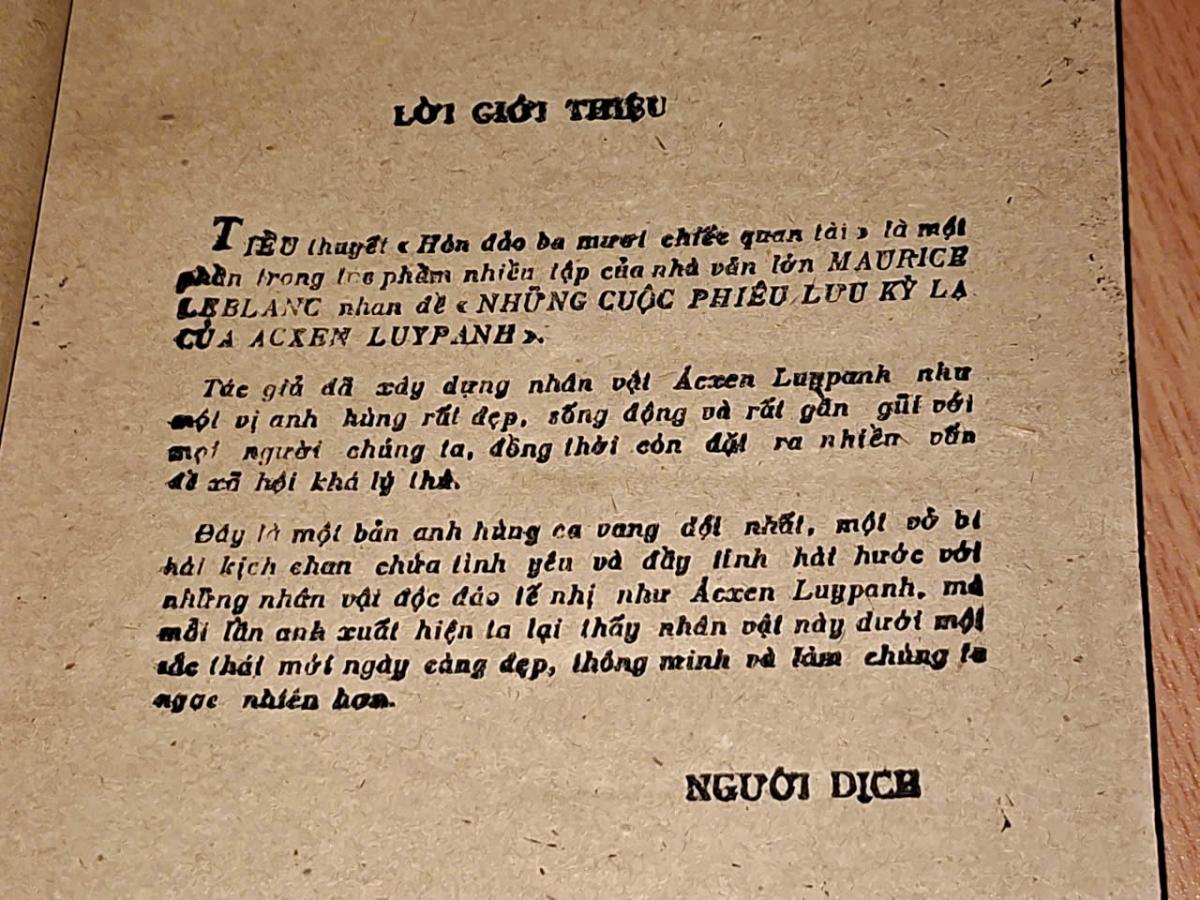 LỜI GIỚI THIỆU
TIỂU thuyết « Hòn đảo ba mươi chiếc quan tài » là một
phần trong tác phẩm nhiều tập của nhà văn lớn MAURICE
LEBLANC nhan đề « NHỮNG CUỘC PHIÊU LƯU KỲ LẠ
CỦA ACXEN LUYPANH ».
Tác giả đã xây dựng nhân vật Ácxen Luypanh như
một vị anh hùng rất đẹp, sống động và rất gần gũi với
mọi người chúng ta, đồng thời còn đặt ra nhiều vấn
đề xã hội khá lý thú.
Đây là một bản anh hùng ca vang dội nhất, một vở bi
hài kịch chan chứa tình yêu và đầy tính hài hước với
những nhân vật độc đáo tế nhị như Ácxen Luypanh, mà
mỗi lần anh xuất hiện ta lại thấy nhân vật này dưới một
sắc thái mới ngày càng đẹp, thông minh và làm chúng ta
ngạc nhiên hơn.
NGƯỜI DỊCH